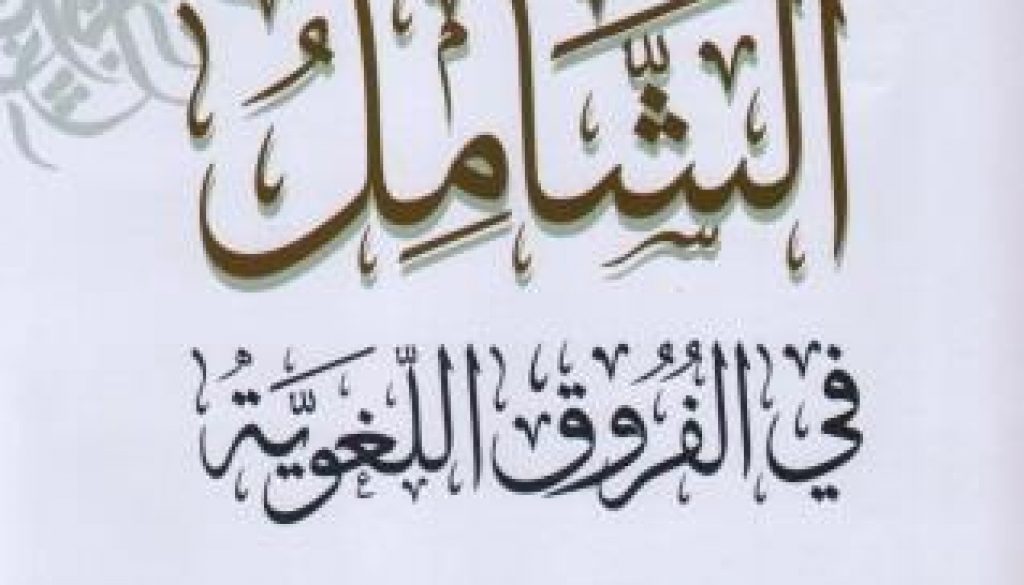 الشَّامِلُ
في الفُرُوقِ اللُّغَوِيَّةُ